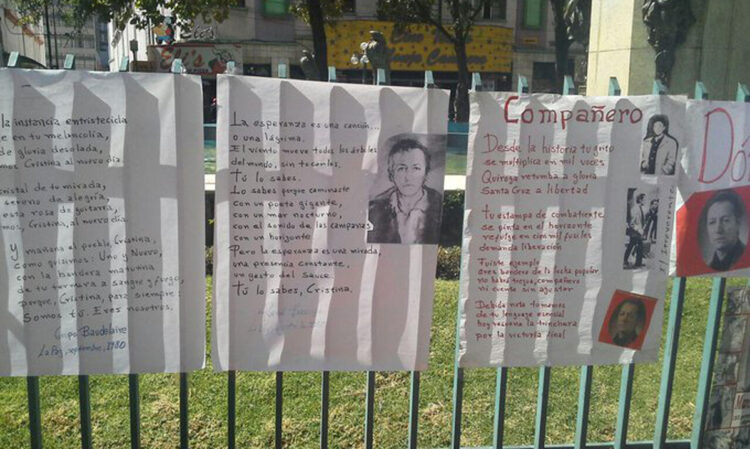 la instancia entristecida
en tu melancolía,
de gloria desolada,
mos, Cristina al nuevo día.
cristal de tu mirada,
sereno de alegría,
esta rosa de guitarra,
mos, Cristina, al nuevo día
Y mañana el pueblo, Cristina,
como quisimos: Uno y Nuevo,
con la bandera matutina
de tu ternura a sangre y fuego,
porque, Cristina, para siempre
Somos tú. Eres nosotros.
Grupo Baudelaire
La Paz, septiembre, 1980
La esperanza es una canción...
o una lágrima.
El viento mueve todos los árboles
del mundo, sin tocarlos.
Tú lo sabes.
Lo sabes porque caminaste
con un poeta gigante,
con un mar nocturno,
con el sonido de las campanas
con un horizonte
Pero la esperanza es una mirada,
una presencia constante,
un gesto del sauce.
Tú lo sabes, Cristina.
Compañero
Desde la historia tu grito
se multiplica en mil voces
Quiroga retumba a gloria
Santa Cruz a libertad
tu estampa de combatiente
se pinta en el horizonte
refulge en cien mil fusiles
demanda liberación
Fuiste ejemplo
eres bandera de la lucha popular
no habrá tregua, compañero
ni cuenta sin ajustar
Debida nota tomamos
de tu lenguaje esencial
hoy resuena la trinchera
por la victoria final